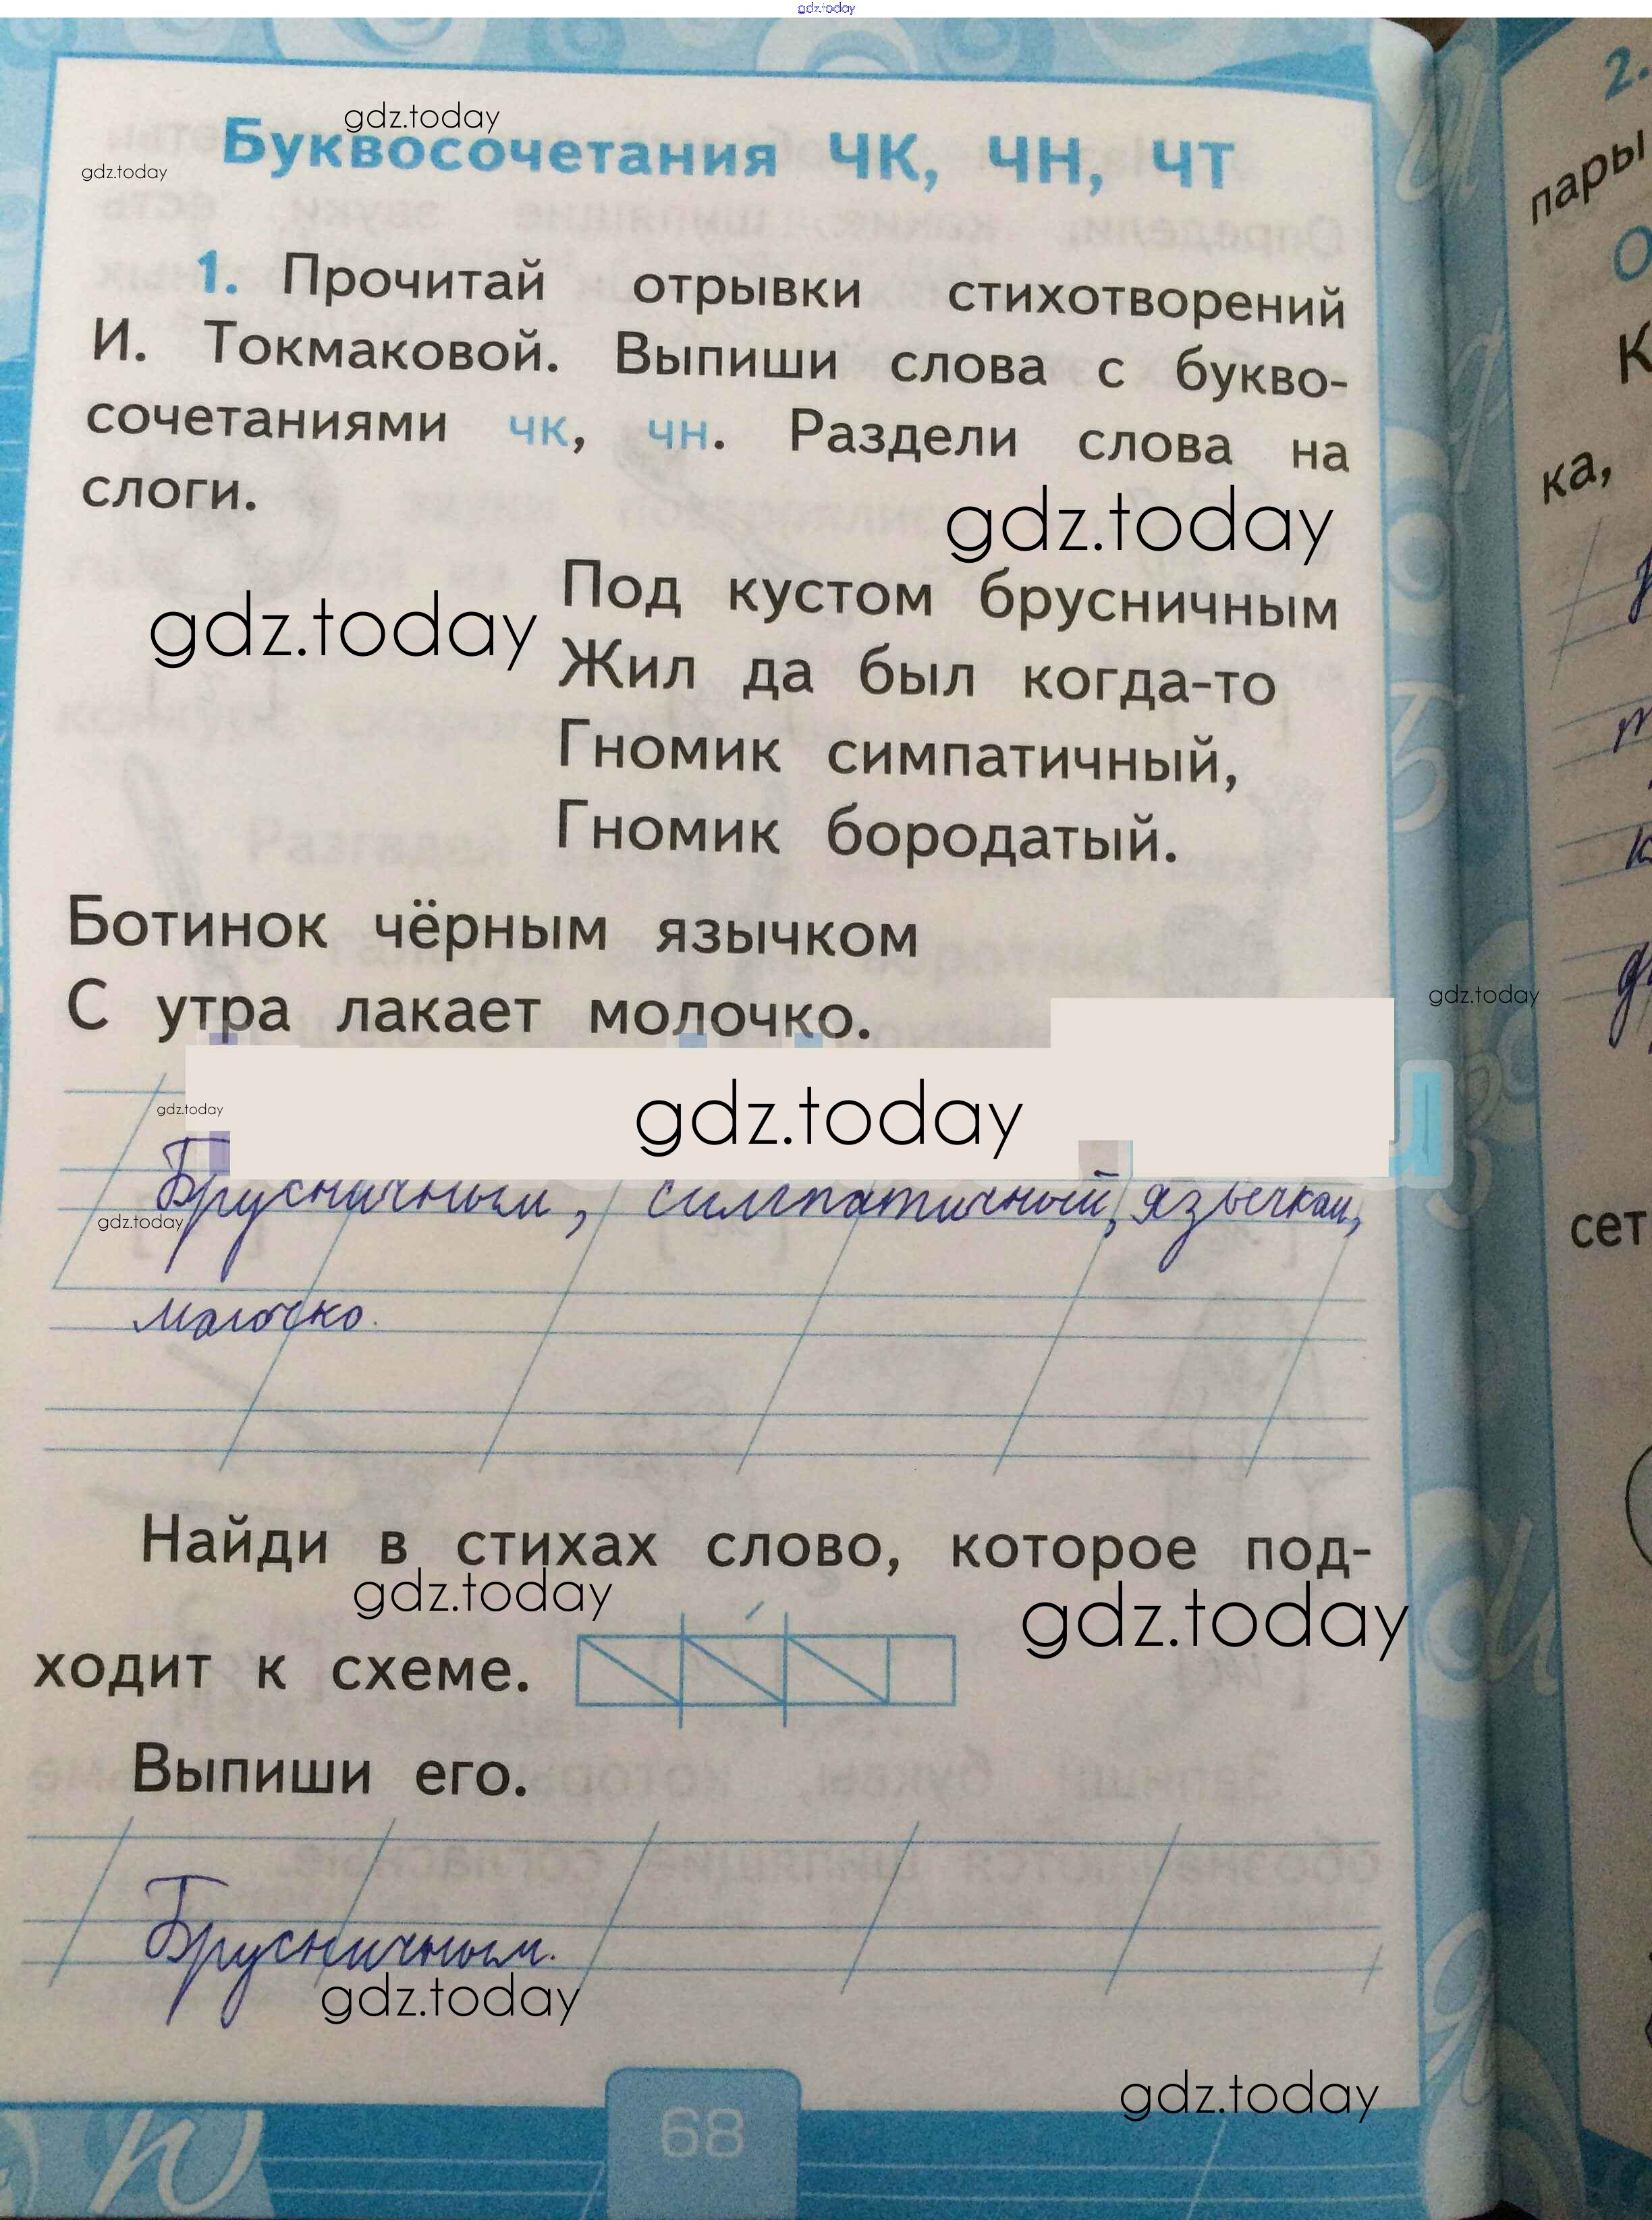 gdz.today
gdz.today
Буквосочетания ЧК, ЧН, ЧТ
gdz.today
1. Прочитай отрывки стихотворений
И. Токмаковой. Выпиши слова с букво-
сочетаниями чк, чн. Раздели слова на
слоги.
gdz.today
Под кустом брусничным
gdz.today
Жил да был когда-то
Гномик симпатичный,
Гномик бородатый.
Ботинок чёрным язычком
С утра лакает молочко.
gdz.today
gdz.today
gdz.today
Брусничным, симпатичный, язычком,
gdz.today
молочко.
Найди в стихах слово, которое под-
gdz.today
gdz.today
ходит к схеме.
Выпиши его.
Брусничным.
gdz.today
gdz.today
68
2.
пары
О
К
ка,
сет